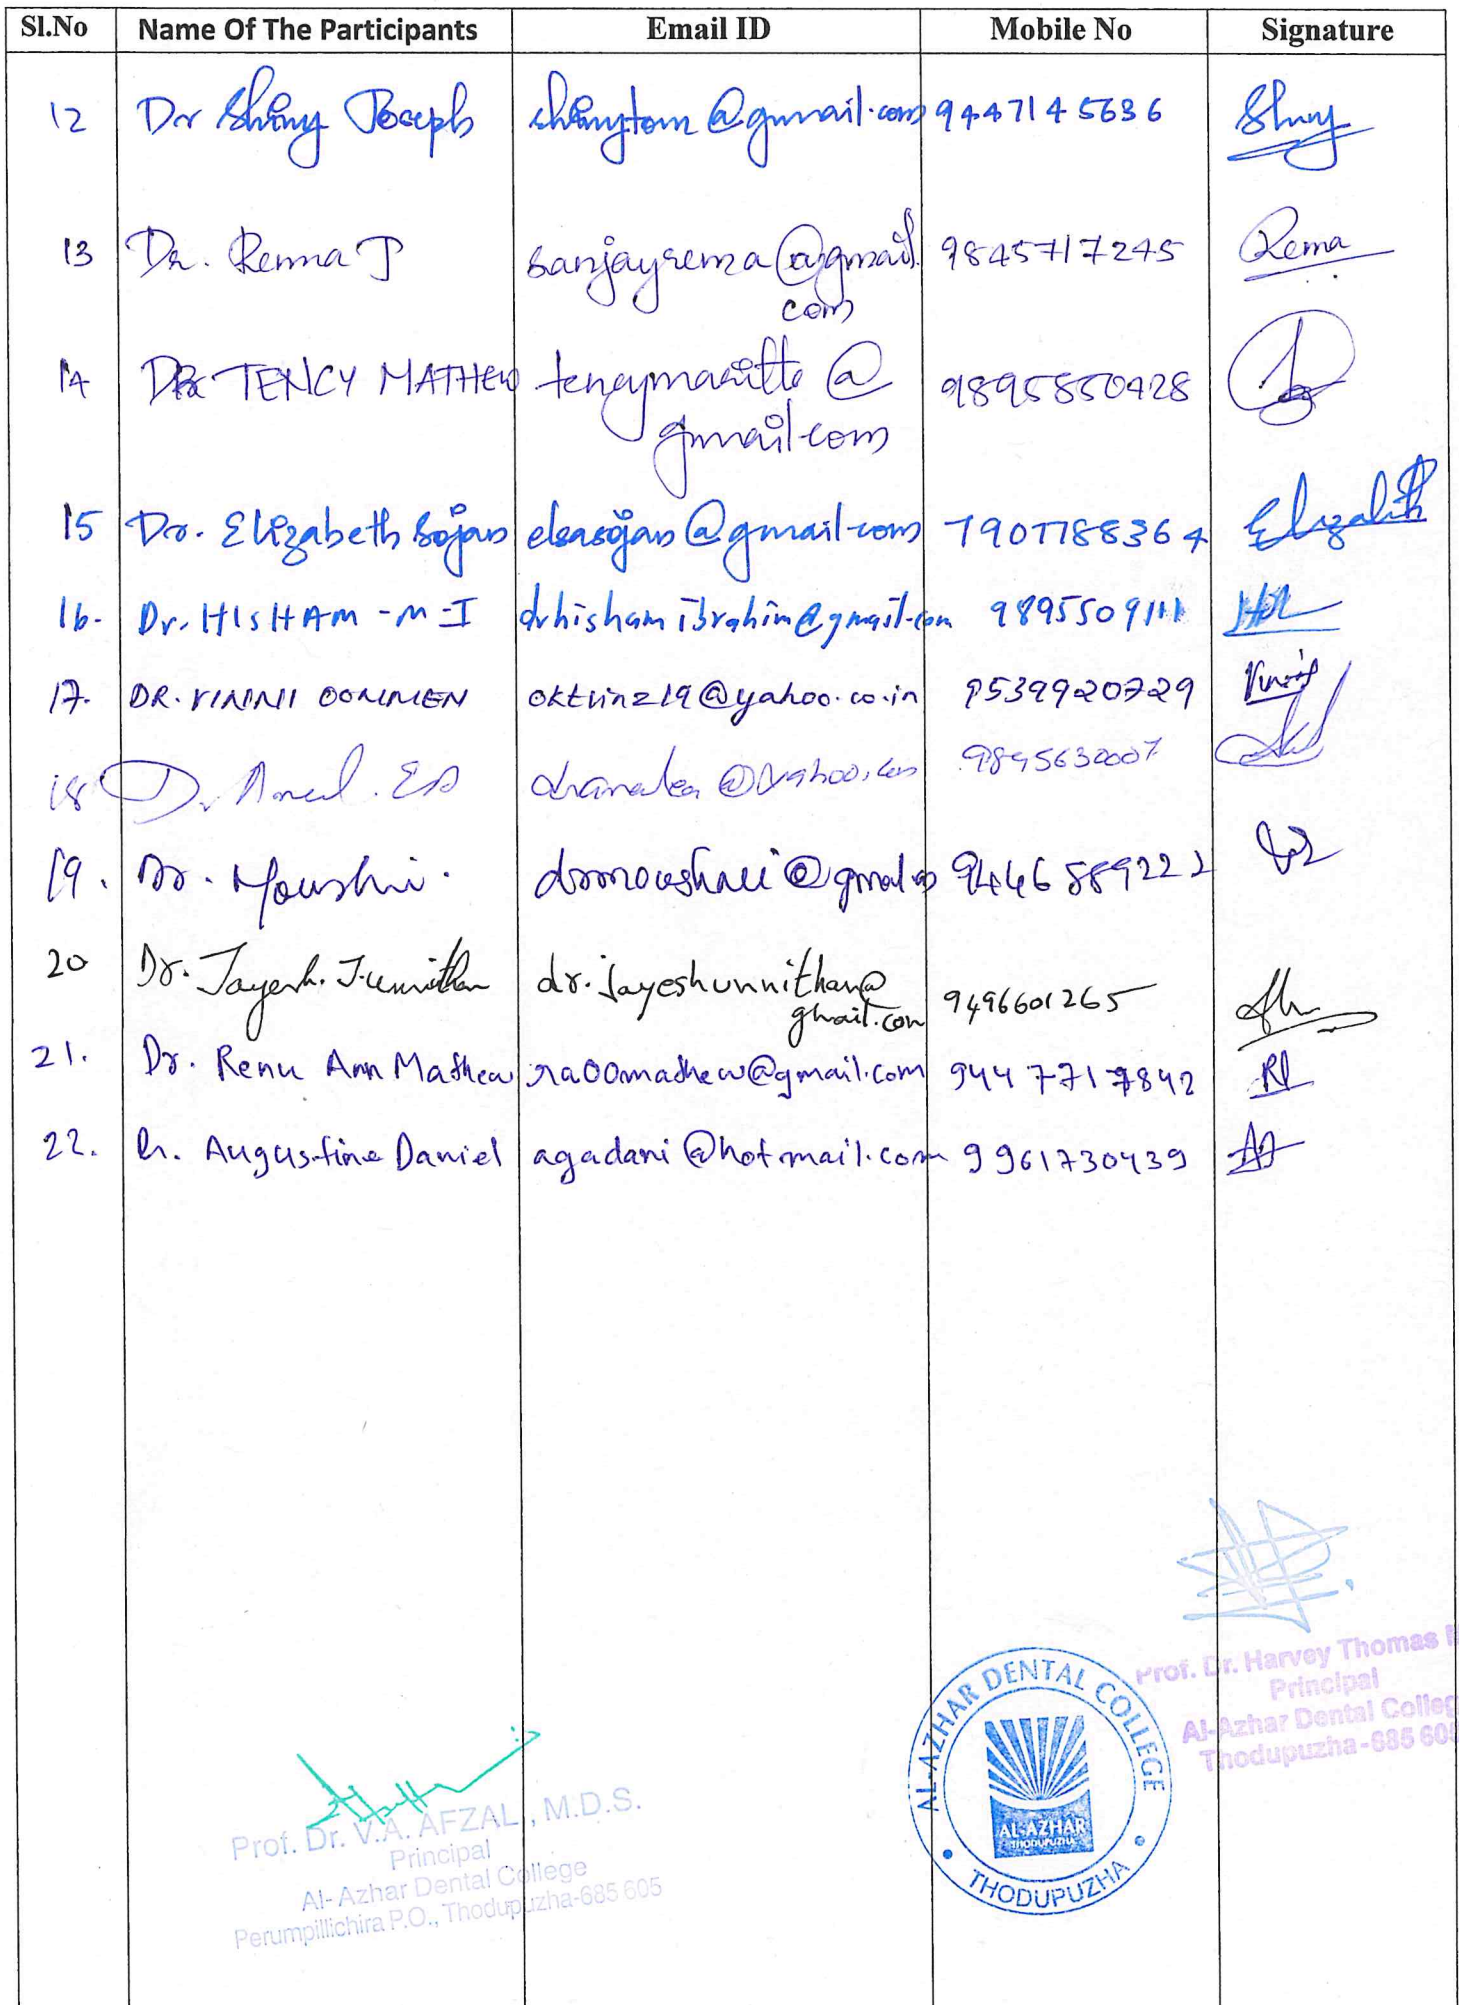 Sl.No Name Of The Participants Email ID Mobile No Signature
12 Dr Shiny Joseph shinytom@gmail.com 9447145636 Shiny
13 Dr. Rema J sanjayrema@gmail.
com 9845717245 Rema
14 DR TENCY MATHEW @
gmail.com 9895850428
15 Dr. Elizabeth Sojan elsasojan@gmail.com 7907788364 Elizabeth
16. Dr. HISHAM - M - I drhishamibrahim@gmail.com 9895509111
17. DR. VINNII OOMMEN oktvinz19@yahoo.co.in 9539920729
18 Dr Amal. E A @yahoo.com 9895630007
19. Dr. 9446589222
20 Dr. Jayesh. J. unnithan dr.jayeshunnithan@
gmail.com 9496601265
21. Dr. Renu Ann Mathew ra00mathew@gmail.com 9447717842
22. Dr. Augustine Daniel agadani@hotmail.com 9961730439
Prof. Dr. Harvey Thomas
Principal
Al-Azhar Dental Colleg
Thodupuzha-685 605
AL-AZHAR DENTAL COLLEGE
AL-AZHAR
THODUPUZHA
THODUPUZHA
Prof. Dr. V.A. AFZAL, M.D.S.
Principal
Al- Azhar Dental College
Perumpillichira P.O., Thodupuzha-685 605